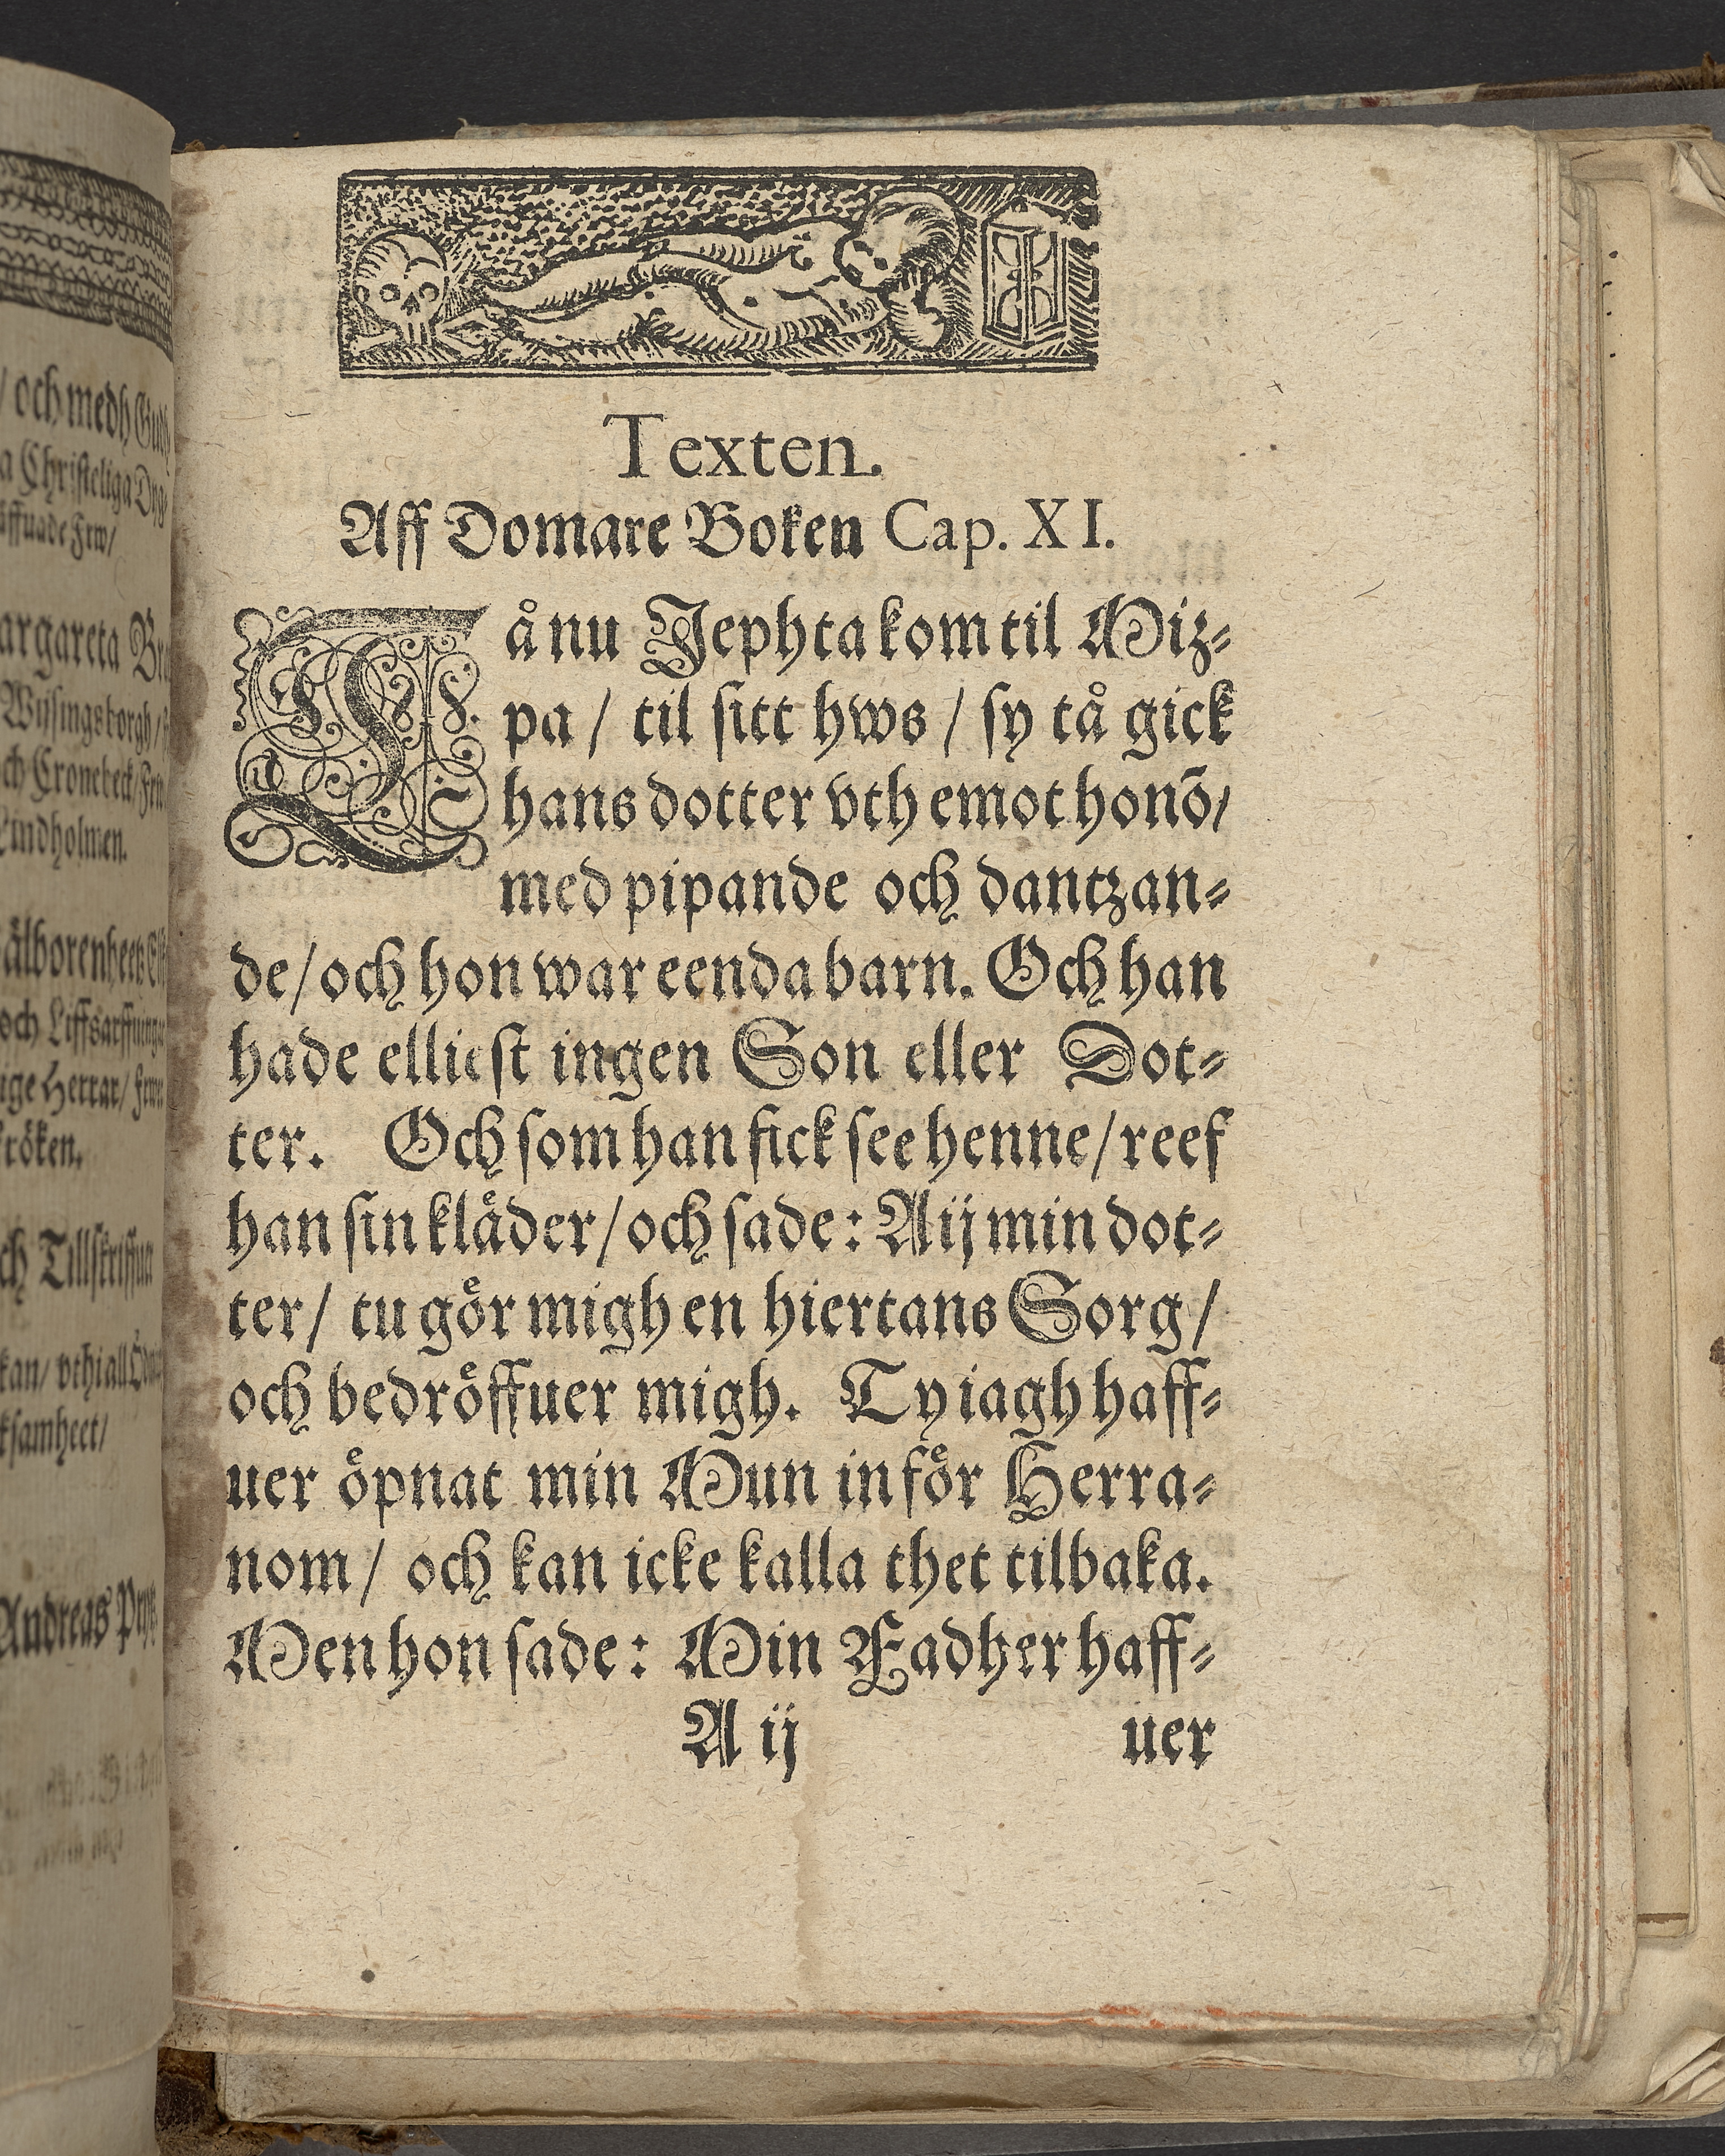 / och medh Gudh
a Christeliga Dyg
äffuade Frw/
argareta Br
Wijsingsborgh/
ch Cronebeck/ Frw
Lindholmen.
älborenheetz
och Liffsarffuinga
ige Herrar/ Frw
röken.
ch Tillskriffua
kan/ vthi all Ödm
ksamheet/
Andreas Pryt
Texten.
Aff Domare Boken Cap. XI.
Tå nu Jephta kom til Miz-
pa / til sitt hws / sy tå gick
hans dotter vth emot honō/
med pipande och dantzan-
de/ och hon war eenda barn. Och han
hade elliest ingen Son eller Dot-
ter. Och som han fick see henne/ reef
han sin kläder/ och sade: Aij min dot-
ter/ tu gör migh en hiertans Sorg/
och bedröffuer migh. Ty iagh haff-
uer öpnat min Mun inför Herra-
nom/ och kan icke kalla thet tilbaka.
Men hon sade: Min Fadher haff-
A ij uer